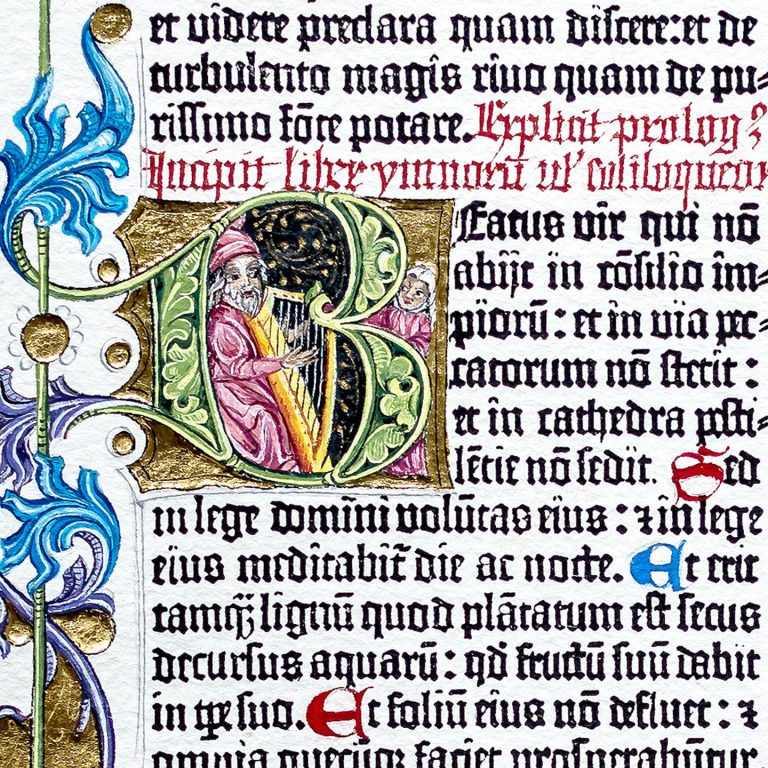 et videre preclara quam discere: et de
turbulento magis rivo quam de pu-
rissimo fōte potare. Explicit prolog9
Incipit liber ymnorū vel soliloqueor
Beatus vir qui nō
abijt in cōsilio im-
piorū: et in via pec-
catorum nō stetit:
et in cathedra pesti-
lētie nō sedit. Sed
in lege domini volūtas eius: ⁊ in lege
eius meditabit᷑ die ac nocte. Et erit
tamqᷓ lignū quod plātatum est secus
decursus aquarū: qd̕ fructū suū dabit
in tp̄e suo. Et foliū eius nō defluet: ⁊
omnia quecūqꝫ faciet prosperabūtur